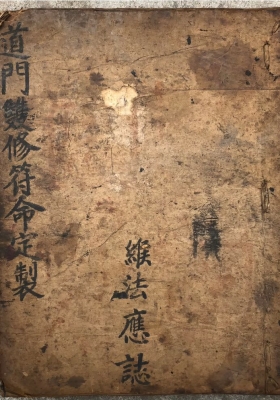 道門雙修符命定製
維法應誌